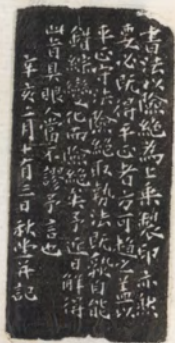 書法以險絕為上乘製印亦然
要必既得平正者方可趨之蓋以
平正守法險絕取勢法既熟自能
錯綜變化而險絕矣予近日解得
此旨具眼人當不謬予言也
辛亥二月十有三日秋堂并記